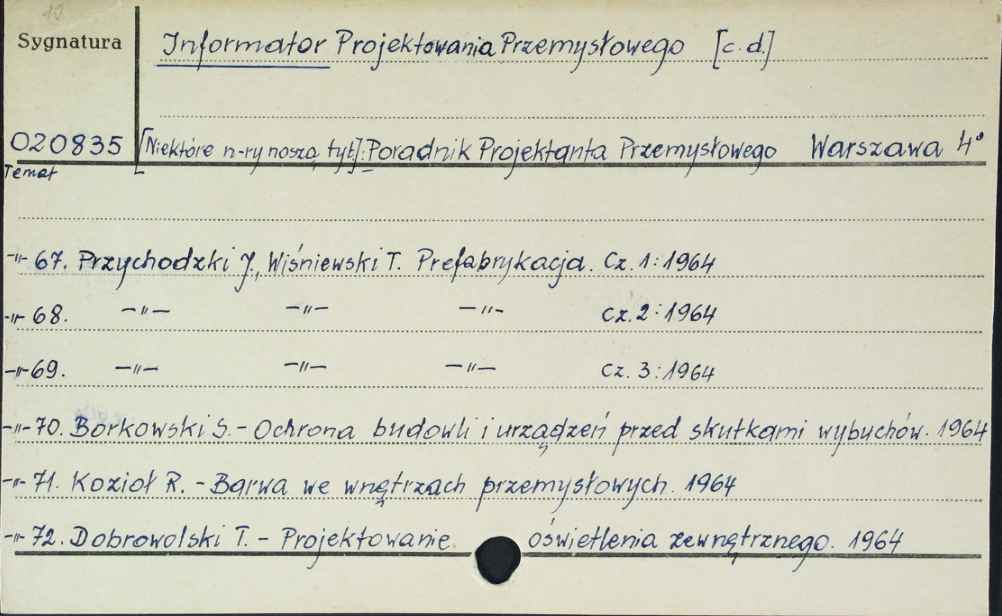 10
Sygnatura
Informator Projektowania Przemysłowego [c.d.]
020835 [Niektóre n-ry noszą tyt]: Poradnik Projektanta Przemysłowego Warszawa 4°
Temat
-"- 67. Przychodzki J., Wiśniewski T. Prefabrykacja. Cz. 1: 1964
-"- 68. -"- -"- -"- cz. 2: 1964
-"- 69. -"- -"- -"- cz. 3: 1964
-"- 70. Borkowski S. - Ochrona budowli i urządzeń przed skutkami wybuchów. 1964
-"- 71. Kozioł R. - Barwa we wnętrzach przemysłowych. 1964
-"- 72. Dobrowolski T. - Projektowanie oświetlenia zewnętrznego. 1964